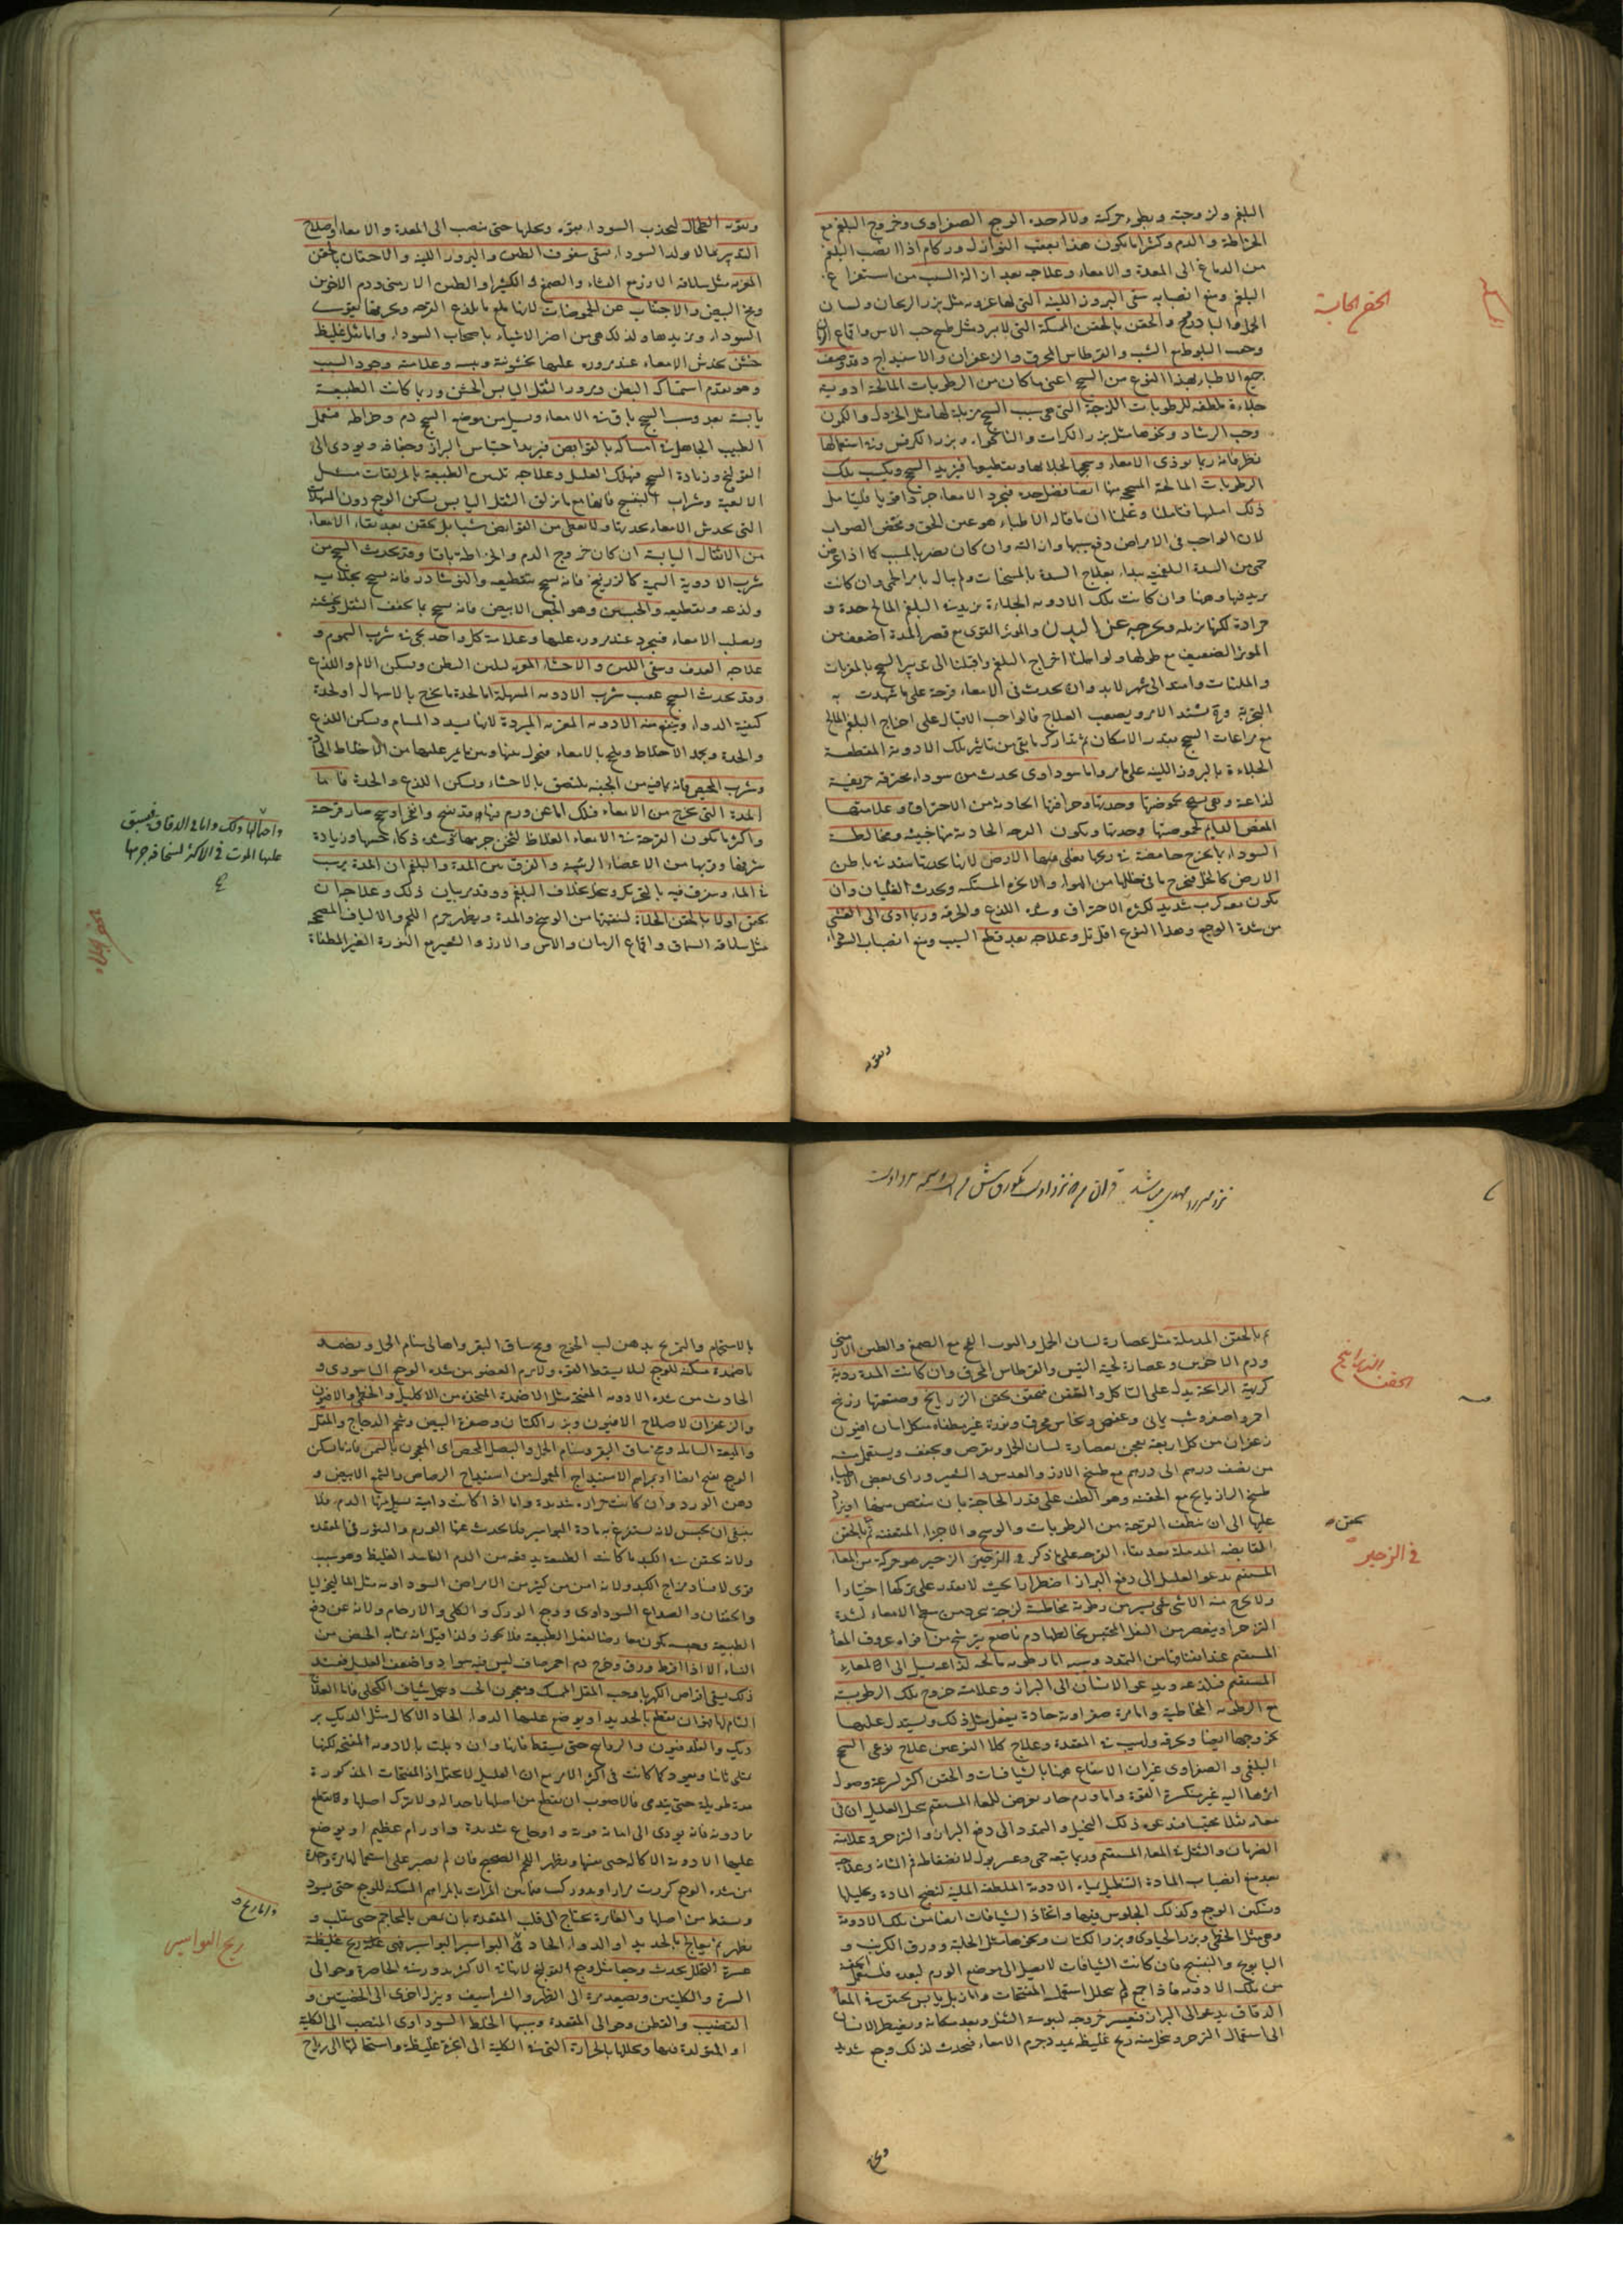 البلغم ولزوجته وبطوء حركته ولالحدة الوجع الصفراوى وخروج البلغم مع
الخراطة والدم وكثيرا ما يكون هذا بعقب النوازل وزكام اذا انصب البلغم
من الدماغ الى المعدة والامعاء وعلاجه بعد ازالة السبب من استفراغ
البلغم ومنع انصبابه سقى البزور اللينة التى لها غروية مثل بزر الريحان ولسان
الحمل والحقن بالحقن الممسكة التى لا تبرد مثل طبيخ حب الاس واقماع الرمان
وحب البلوط مع الشب والقرطاس المحرق والزعفران والاسفيداج وقد وصف
جميع الاطباء لهذا النوع من السحج اعنى ما كان من الرطوبات المالحة ادوية
جلاءة ملطفة للرطوبات اللزجة التى هى سبب السحج مزيلة لها مثل الخردل والكمون
وحب الرشاد ونحوها مثل بزر الكراث والنانخواه وبزر الكرفس وفى استعمالها
نظر فانه ربما يوذى الامعاء وسحجها بجلائها وتقطيعها فيزيد السحج ويكسب تلك
الرطوبات المالحة المسحجة منها ايضا فضل حدة فيجرد الامعاء جردا قويا فليتامل
ذلك
لان الواجب فى الامراض دفع سببها وازالته وان كان يضر بالمسبب كما اذا عرض
حمى من السدة البلغمية يبداء بعلاج السدة بالمسخنات ولم يبال بامر الحمى وان كانت
يزيد فيها وههنا وان كانت تلك الادوية الجلاءة تزيد فى البلغم المالح حدة و
حرارة لكنها تزيله وتخرجه عن البدن والموثر القوى مع قصر المدة اضعف من
الموثر الضعيف مع طولها ولو اهملنا اخراج البلغم واقبلنا الى تدبير السحج بالمغريات
والملينات وامتد الى شهر لابد وان يحدث فى الامعاء قرحة على ما شهدت به
التجربة وح يشتد الامر ويصعب العلاج فالواجب الاقبال على اخراج البلغم المالح
مع مراعات السحج بقدر الامكان ثم تدارك ما بقى من تاثير تلك الادوية المقطعة
الجلاءة بالبزور اللينة على ما مر واما سوداوى يحدث من سوداء محترقة حريفة
لذاعة وهى تسحج بحموضتها وحدتها وحرافتها الحادثة من الاحتراق وعلامتها
المغص الدايم لحموضتها وحدتها ويكون الوجع الحادث منها خبيثة ومخالطة
السوداء لما يخرج حامضة فى ريحها تغلى منها الارض لانها بحدتها تنفذ فى باطن
الارض كالخل فيخرج ما فى خللها من الهواء والابخرة المستكنة ويحدث الغليان وان
يكون معه كرب شديد لكثرة الاحتراق وشدة اللذع والحرقة وربما ادى الى الغشى
من شدة الوجع وهذا النوع اقل قتل وعلاجه بعد قطع السبب ومنع انصباب السوداء
الحقن الحابسة
وتقوية الطحال ليجذب السوداء بقوة ويحللها حتى تنصب الى المعدة والامعاء واصلاح
التدبير لئلا يولد السوداء سقى سفوف الطين والبزور اللينة والاحتقان بالحقن
المغرية مثل سلاقة الارز مع النشاء والصمغ والكثيرا والطين الارمنى ودم الاخوين
ومخ البيض والاجتناب عن الحموضات لانها تلمع بالذع القرحة وتحرضها لتقوية
السوداء وتزيدها ولذلك هى من اضر الاشياء باصحاب السوداء واما ثفل غليظ
خشن يخدش الامعاء عند مروره عليها بخشونته ويبسه وعلامته وجود السبب
وهو تقدم استمساك البطن ومرور الثفل اليابس الخشن وربما كانت الطبيعة
يابسة بعد وسبب السحج باق فى الامعاء ويسيل من موضع السحج دم وخراطة فيحمل
الطبيب الجاهل فى امساكه بالقوابض فيزيد احتباس البراز وجفافه ويودى الى
القولنج وزيادة السحج فيهلك العليل وعلاجه تليين الطبيعة بالمزلقات مثل
الالعبة وشراب البنفسج فانها مع ما تزلق الثفل اليابس يسكن الوجع دون المسهلات
التى تخدش الامعاء بحدتها ولا تعطى من القوابض شيئا بل يحقن بعد نقاء الامعاء
من الاثفال اليابسة ان كان خروج الدم والخراطة باقيا وقد يحدث السحج من
شرب الادوية السمية كالزرنيخ فانه يسحج بتقطيعه والنوشادر فانه يسحج بجلائه
ولذعه وتقطيعه والجبسين وهو الجص الابيض فانه يسحج بما يجفف الثفل ويخشنه
ويصلب الامعاء فينجرد عند مروره عليها وعلامة كل واحد تجربة شرب السموم و
علاجه القذف وسقى اللبن والاحشاء المغرية لتلين البطن ويسكن الالم واللذع
وقد يحدث السحج عقيب شرب الادوية المسهلة اما لحدة ما يخرج بالاسهال او لحدة
كيفية الدواء وينفع منه الادوية المغرية المبردة لانها تسدد المسام ويسكن اللذع
والحدة
وشرب المخيض فانه بما فيه من الجبنية يلتصق بالاحشاء ويسكن اللذع والحدة فاما
المدة التى تخرج من الامعاء فتلك اما عن ورم بها وقد نضج وانفجر او سحج صار قرحة
واكثر ما يكون القرحة فى الامعاء الغلاظ لثخن جرمها وشدة ذكاء حسها وزيادة
شرفها وقربها من الاعضاء الرئيسة والفرق بين المدة والبلغم ان المدة يرسب
فى الماء ويتفرق فيه بالتحريك ويتحلل بخلاف البلغم وقد مر بيان ذلك وعلاجها ان
يحقن اولا بالحقن الجلاءة لتنقيتها من الوسخ والمدة ويظهر جرم اللحم والالياف الصحيحة
مثل سلاقة السماق واقماع الرمان والاس والارز والشعير مع النورة الغير المطفاة
واحتمالها ذلك واما فى الدقاق فيسبق
عليها الموت فى الاكثر لسخافة جرمها
ثم بالحقن المدملة مثل عصارة لسان الحمل والبوب الفج مع الصمغ والطين الارمنى
ودم الاخوين وعصارة لحية التيس والقرطاس المحرق وان كانت المدة ردية
كريهة الرائحة يدل على التاكل والعفن فيحقن بحقن الزرانيخ وصنعتها زرنيخ
احمر واصفر وشب يمانى وعفص ونحاس محرق ونورة غير مطفاة من كل افيون
زعفران من كل اربعة يعجن بعصارة لسان الحمل ويقرص ويجفف ويستعمل منه
من نصف درهم الى درهم مع طبيخ الارز والعدس والشعير وراى بعض الاطباء
طبيخ الرازيانج مع الحقنة وهو الطف على قدر الحاجة بان ينقص منها او يزاد
عليها الى ان ينظف القرحة من الرطوبات والوسخ والاجزاء المتعفنة ثم بالحقن
القابضة المدملة بعد نقاء القرحة على ما ذكر فى الزحير الزحير هو حركة من المعاء
المستقيم تدعو العليل الى دفع البراز اضطرارا بحيث لا يقدر على تركها اختيارا
ولا يخرج منه الا شئ يسير من رطوبة مخاطية لزجة تنجرد من سطح الامعاء لشدة
التزحر او ينعصر من الثفل المحتبس يخالطها دم ناصع يترشح من افواه عروق المعاء
المستقيم عند انفتاقها من التمدد وسببه اما رطوبة مالحة لذاعة يسيل الى المعاء
المستقيم فتلذعه ويدعو الانسان الى البراز وعلامته خروج تلك الرطوبة
مع الرطوبة المخاطية واما مرة صفراوية حادة يفعل مثل ذلك ويستدل عليها
بخروجها ايضا وبحرقة ولهيب فى المقعدة وعلاج كلا النوعين علاج نوعى السحج
البلغمى والصفراوى غير ان الانتفاع ههنا بالشيافات والحقن اكثر لسرعة وصول
اثرها اليه غير منكسرة القوة واما ورم حار يعرض للمعاء المستقيم يخيل العليل ان فى
معائه ثفلا محتبسا فيدعوه ذلك التخيل والتمدد الى دفع البراز والتزحر وعلامته
الضربان والثقل فى المعاء المستقيم وربما يتبعه حمى وعسر بول لانضغاط فم المثانة وعلاجه
بعد منع انصباب المادة التنطيل بماء الادوية الملطفة الملينة لتنضج المادة ويحللها
ويسكن الوجع وكذلك الجلوس فيها واتخاذ الشيافات ايضا من تلك الادوية
وهى مثل الخطمى وبزر الخبازى وبزر الكتان ونحوها مثل الحلبة وورق الكرنب و
البابونج والبنفسج فان كانت الشيافات لا يصل الى موضع الورم لبعده فليستعمل الحقنة
من تلك الادوية فاذا جمع ولم يتحلل استعمل المفتحات واما زبل يابس يحتبس فى المعاء
الدقاق يدعو الى البراز فيعسر خروجه ليبوسة الثفل وبعد مكانه ويضطر الانسان
الى استعمال التزحر ويتخلل منه ريح غليظة يمدد جرم الامعاء فيحدث لذلك وجع شديد
الحقن الزرانيخ
يحقن
فى الزحير
بالاستحمام والتمريخ بدهن لب الخوخ ومخ ساق البقر واهال سنام الجمل وتضمد
باضمدة مسكنة للوجع لئلا يسقط القوة ولا يرم العضو من شدة الوجع الباسورى و
الحادث من شدة الادوية المفتحة مثل الاضمدة المتخذة من الاكليل والخطمى والافيون
والزعفران لاصلاح الافيون وبزر الكتان وصفرة البيض وشحم الدجاج والمقل
والميعة السائلة ومخ ساق البقر وسنام الجمل والبصل المحمص اى المعجون بالسمن فانه يسكن
الوجع ينضج ايضا او بمرهم الاسفيداج المعمول من اسفيداج الرصاص والشمع الابيض و
دهن الورد وان كانت حرارة شديدة واما اذا كانت دامية يسيل منها الدم فلا
ينبغى ان يحبس لانه يستفرغ به مادة البواسير فلا يحدث عنها الورم والبثور فى المقعدة
ولانه يحتقن فى الكبد ما كانت الطبيعة يدفعه من الدم الفاسد الغليظ وهو سبب
قوى لافساد مزاج الكبد ولانه امن من كثير من الامراض السوداوية مثل الماليخوليا
والخفقان والصداع السوداوى ووجع الورك والكلى والارحام ولانه عن دفع
الطبيعة وحبسه يكون معارضا لفعل الطبيعة فلا يجوز ولذا قيل انه بمثابة الحيض من
النساء الا اذا افرط ورق وخرج دم احمر صاف ليس فيه سواد واضعف العليل فعند
ذلك يسقى اقراص الكهربا وحب المقل الممسك ومعجون الخبث وحمل شياف الكحلى فاما العلاج
التام لها فهو ان يقطع بالحديد او يوضع عليها الدواء الحاد الاكال مثل الديك بر
ديك والفلدفيون والزرانيخ حتى يسقط فانها وان ذبلت بالادوية المفتحة لكنها
تمتلى ثانيا ويعود كما كانت فى اكثر الامر مع ان العليل لا يحتمل اذى المفتحات المذكورة
مدة طويلة حتى يتدمى فالاصوب ان يقطع من اصلها باحداله ولا يترك اصلها ولا يقطع
بادوية فانه يودى الى افات قوية واوجاع شديدة واورام عظيم او يوضع
عليها الادوية الاكالة حتى يفنيها ويظهر اللحم الصحيح فان لم يصبر على استعمالها مرة واحدة
من شدة الوجع كررت مرارا ويدور كيسا فيما بين المرات بالمراهم المسكنة للوجع حتى يسود
ويسقط من اصلها والغايرة يحتاج الى قلب المقعدة بان يمص بالمحاجم حتى ينقلب و
يظهر ثم يعالج بالحديد او الدواء الحاد فى البواسير البواسير فهى ريح غليظة
عسرة التحلل يحدث وجعا مثل وجع القولنج لانها فى الاكثر يدور فى الخاصرة وحوالى
السرة والكليتين ويصعد مرة الى الظهر والشراسيف وينزل اخرى الى الخصيتين و
القضيب والقطن وحوالى المقعدة وسببها الخلط السوداوى المنصب الى الكلية
او المتولدة فيها وتحللها بالحرارة التى فى الكلية الى ابخرة غليظة واستحالتها الى رياح
واما ريح
ريح البواسير